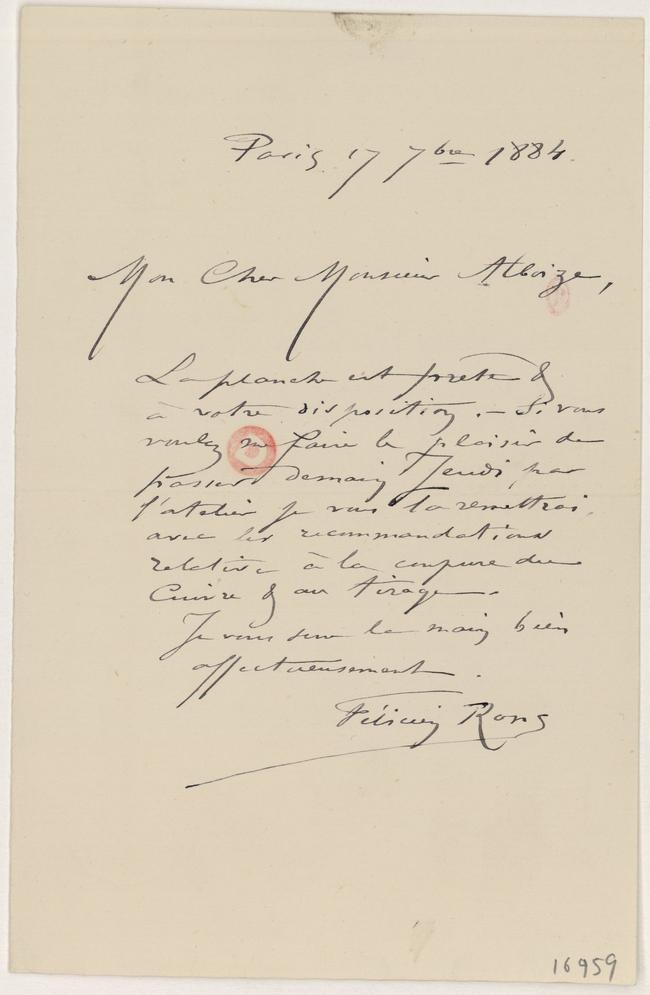 Paris 17 7bre 1884.
Mon Cher Monsieur Alboize,
La planche est prete &
à votre disposition. – Si vous
voulez me faire le plaisir de
passer demain Jeudi par
l'atelier je vous la remettrai,
avec les recommandations
relative à la coupure du
Cuivre & au tirage.
Je vous serre la main bien
affectueusement.
Félicien Rops
16959